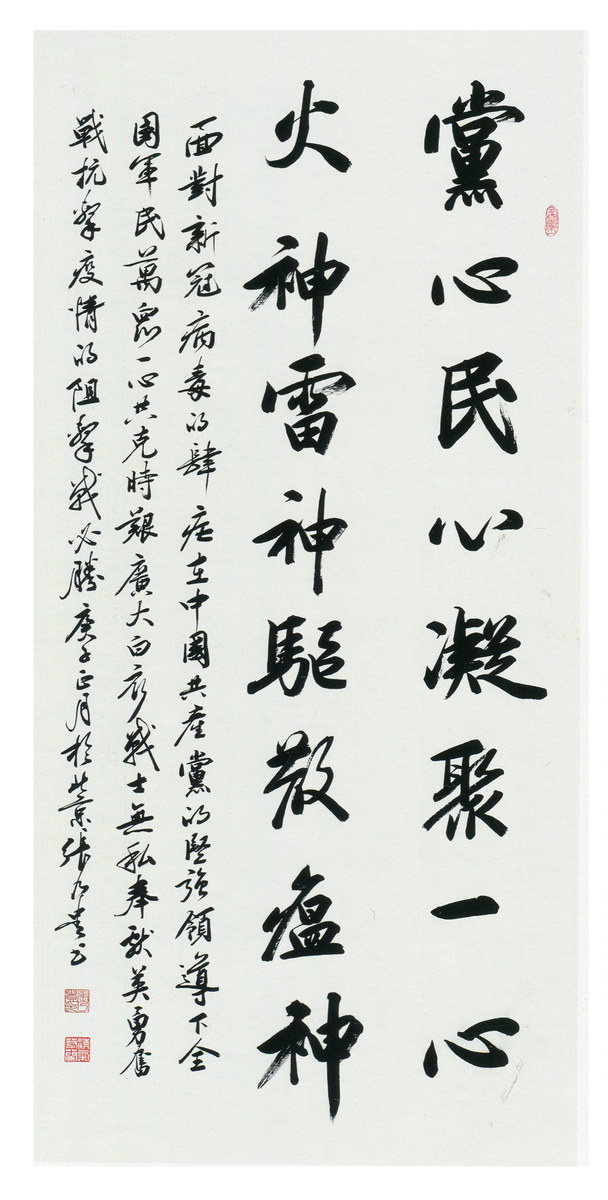 黨心民心凝聚一心
火神雷神驅散瘟神
面對新冠病毒的肆虐在中國共產黨的堅強領導下全
國軍民萬眾一心共克時艱廣大白衣戰士無私奉獻英勇奮
戰抗擊疫情的阻擊戰必勝庚子正月於北京張乃貴書